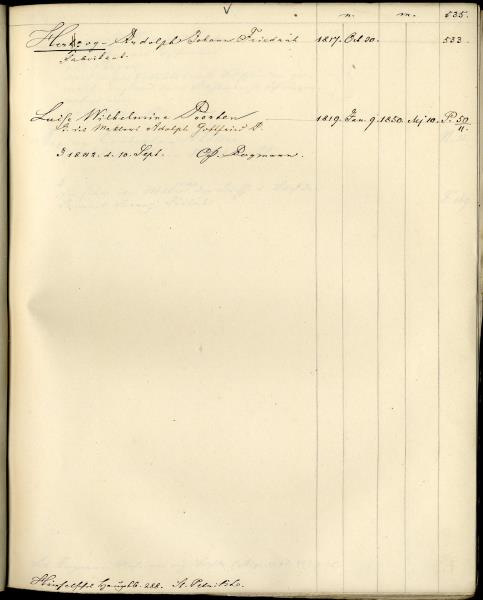 n. m. 535.
Hertzog Rudolph Johann Friedrich 1817. Oct 20. 533.
Fabrikant.
Luise Wilhelmine Poorten 1819. Jan. 9. 1850. Mj 10. P. 50/11.
T. des Maklers Adolph Gottfried P.
1842. d. 10. Sept. Bergmann.
288. St. Petri